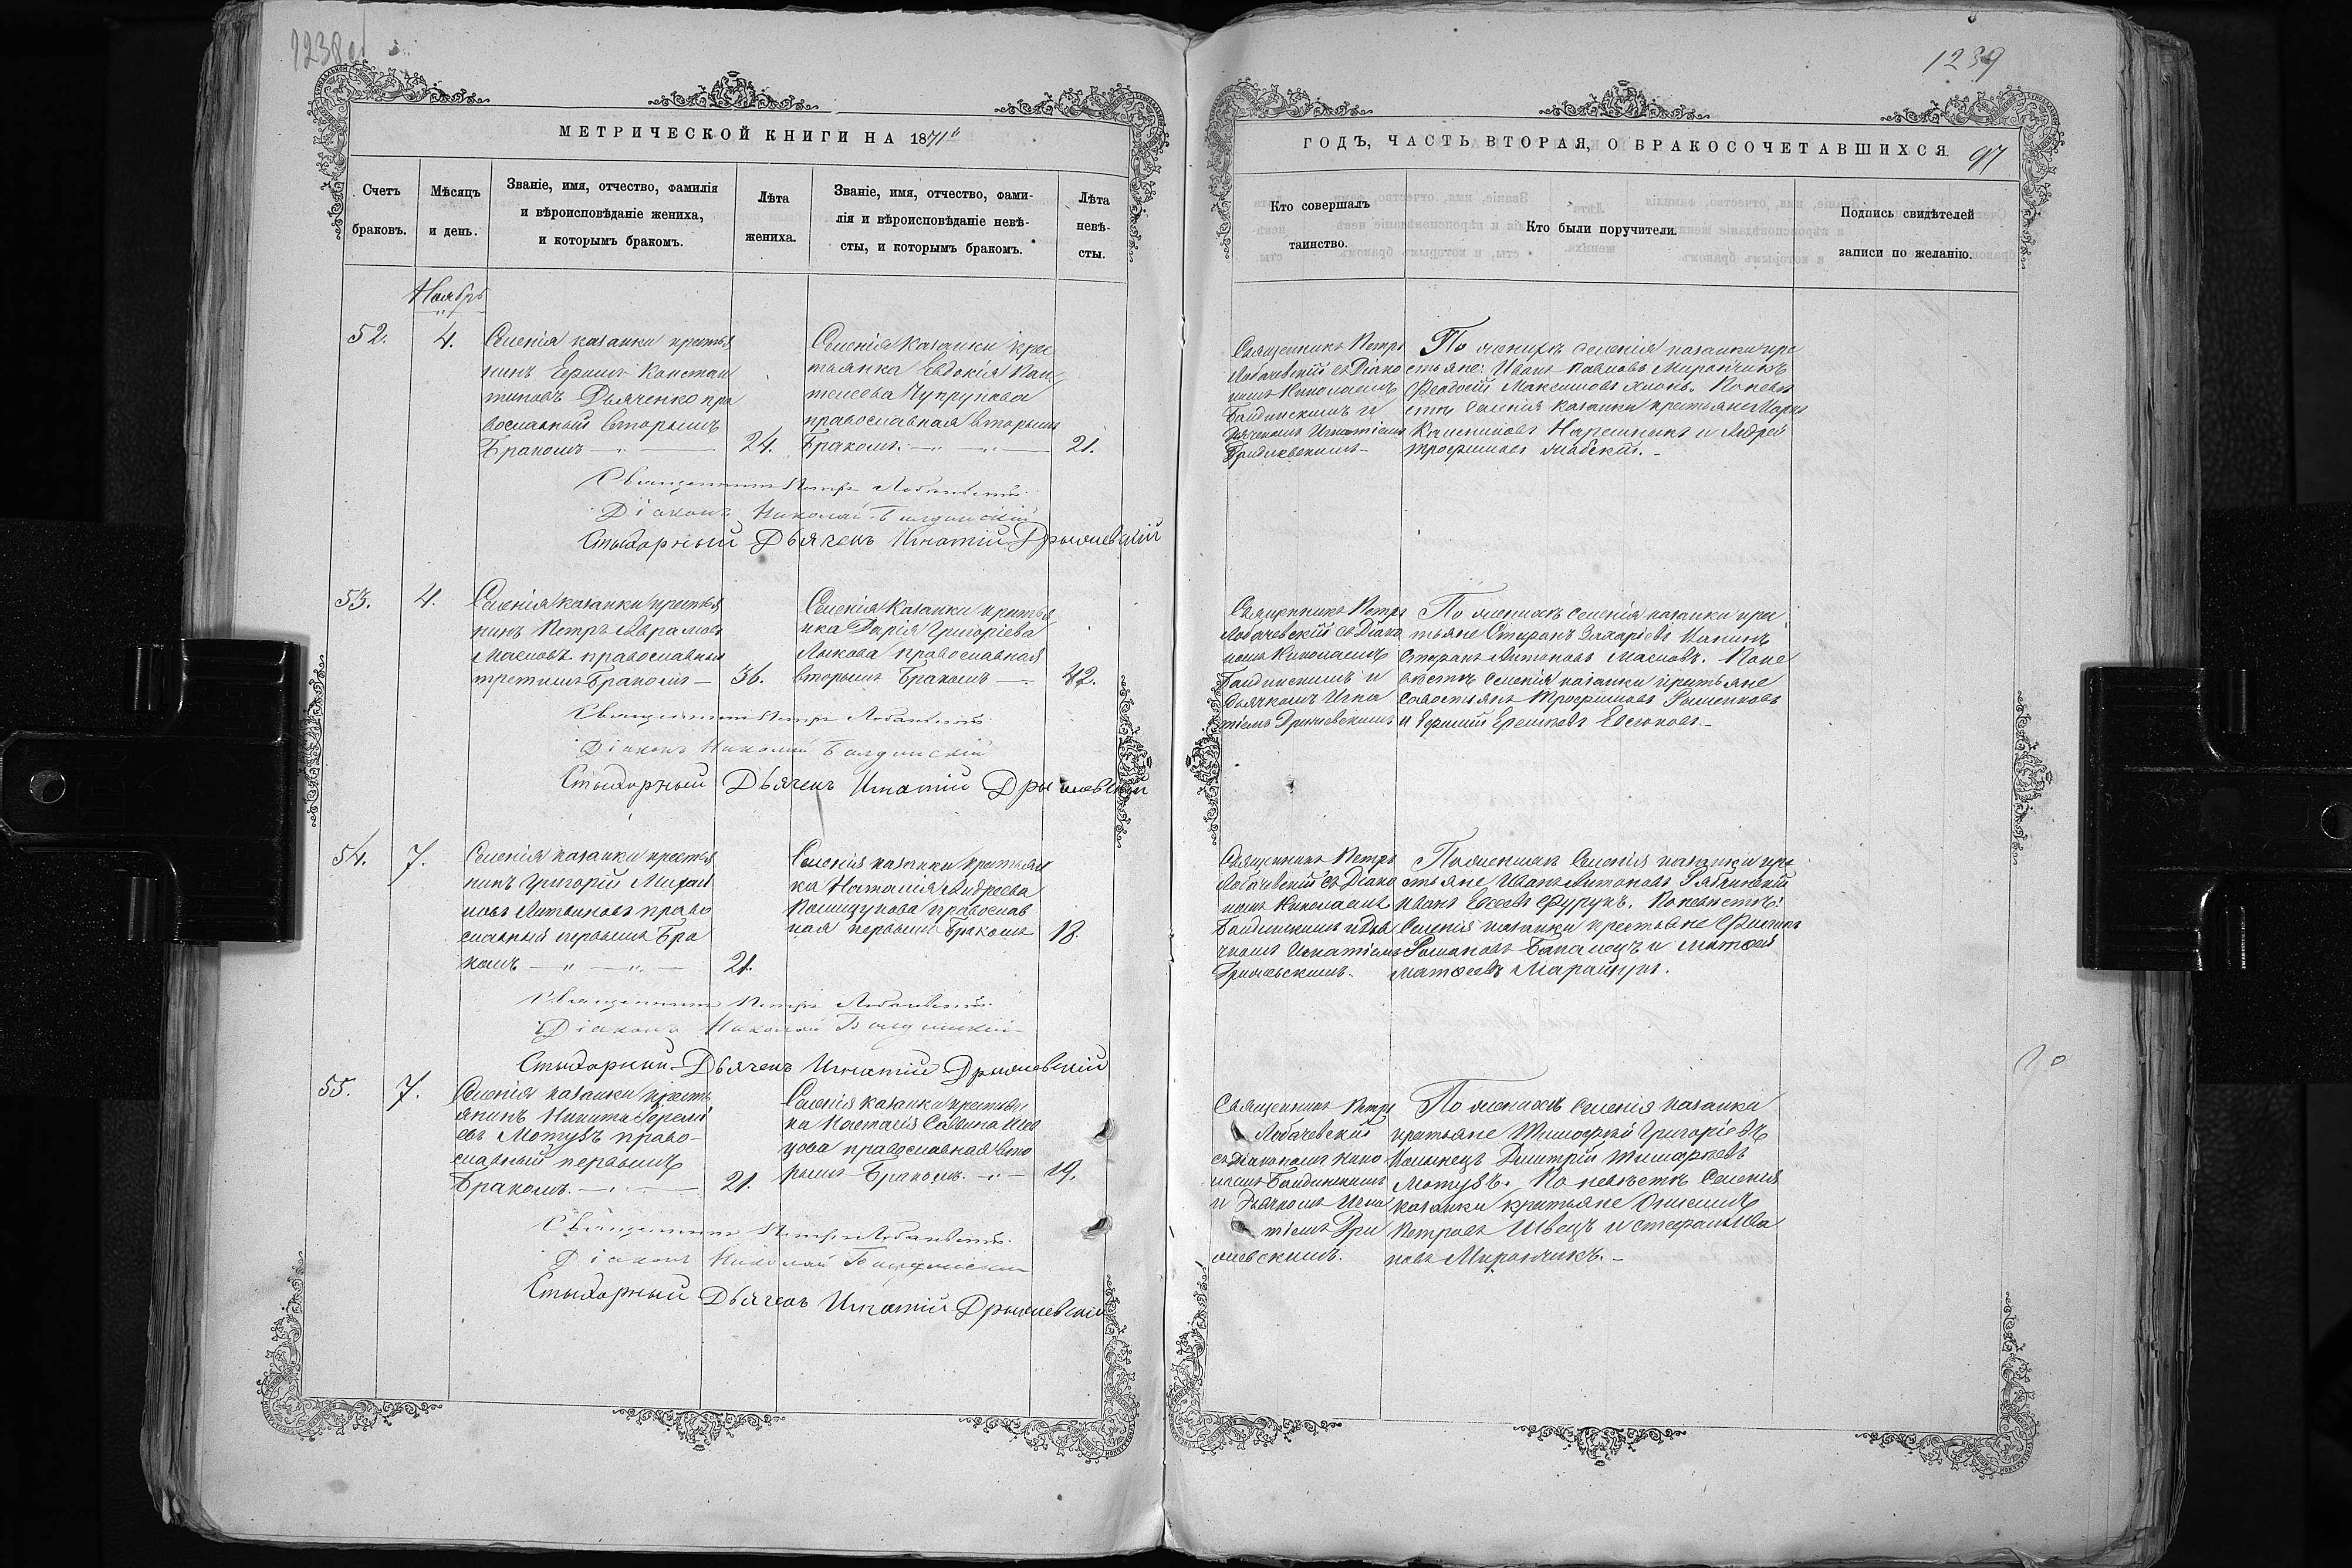 1238об
МЕТРИЧЕСКОЙ КНИГИ НА 1871й
Счетъ браковъ.
Мѣсяцъ и день.
Званіе, имя, отчество, фамилія
и вѣроисповѣданіе жениха,
и которымъ бракомъ.
Лѣта жениха.
Званіе, имя, отчество, фами-
лія и вѣроисповѣданіе невѣ-
сты, и которымъ бракомъ.
Лѣта невѣ-
сты.
Ноябрь
52.
4.
Селенія казанки крестья
нинъ Констан
тиновъ Дьяченко пра
вославный вторымъ
Бракомъ
24.
Селенія Казанки крес
тьянка Евдокія Пан
телеева Чупрунова
православная вторымъ
Бракомъ.
21.
Священникъ Петръ Лобачевскій
Діаконъ Николай Балдинскій
Стыхарный Дьячекъ Игнатій
53.
4.
Селенія казанки крестья
нинъ Петръ Аврамовъ
Масловъ православный
третимъ Бракомъ
36.
Селенія Казанки крестья
нка Дарія Григоріева
Лыкова православная
вторымъ Бракомъ
42.
Священникъ Петръ Лобачевскій
Діаконъ Николай Балдинскій
Стыхарный Дьячекъ Игнатій
54.
7.
Селенія казанки крестья
нинъ Григорій Михай
ловъ Литвиновъ право
славный первымъ Бра
комъ
21.
Селенія казанки крестьян
ка Наталія Андреева
православ
ная первымъ Бракомъ
18.
Священникъ Петръ Лобачевскій
Діаконъ Николай Балдинскій
Стыхарный Дьячекъ Игнатій
55.
7.
Селенія казанки кресть
янинъ Никита
евъ Мотузъ право-
славный первымъ
Бракомъ.
21.
Селенія казанки крестьян
ка Настасія Саввина Шев
цова православная вто
рымъ Бракомъ.
19.
Священникъ Петръ Лобачевскій
Діаконъ Николай Балдинскій
Стыхарный Дьячекъ Игнатій
1239
ГОДЪ, ЧАСТЬ ВТОРАЯ, О БРАКОСОЧЕТАВШИХСЯ.
97
Кто совершалъ
таинство.
Кто были поручители.
Подпись свидѣтелей
записи по желанію.
Священникъ Петръ
Лобачевскій съ Діако
номъ Николаемъ
Балдинскимъ и
Дьячкомъ Игнатіемъ
По женихѣ селенія казанки кре
стьяне: Иванъ Павловъ Мирончикъ
Феодосій Максимовъ. По невѣ
стѣ Селенія Казанки крестьяне Марко
и Андрей
Трофимовъ
Священникъ Петръ
Лобачевскій съ Діако
номъ Николаемъ
Балдинскимъ и
Дьячкомъ Игна
тіемъ
По женихѣ Селенія казанки крес
тьяне Стефанъ Захаріевъ
Стефанъ Антоновъ Масловъ. По не
вѣстѣ Селенія казанки крестьяне
Савостьянъ Трофимовъ
и
Священникъ Петръ
Лобачевскій съ Діако
номъ Николаемъ
Балдинскимъ и Дья
чкомъ Игнатіемъ
По женихѣ Селенія казанки кре
стьяне Иванъ Антоновъ Рябчинскій
Иванъ По невѣстѣ:
Селенія казанки крестьяне Филиппъ
Романовъ и Матфей
Матфеевъ
Священникъ Петръ
Лобачевскій
съ Діакономъ Нико
лаемъ Балдинскимъ
и Дьячкомъ Игна
тіемъ
По женихѣ Селенія казанки
крестьяне Тимофѣй Григоріевъ
Дмитрій Тимофѣевъ
Мотузъ. По невѣстѣ Селенія
казанки крестьяне Онисимъ
Петровъ Швецъ и Стефанъ Ива
новъ Мирончикъ.